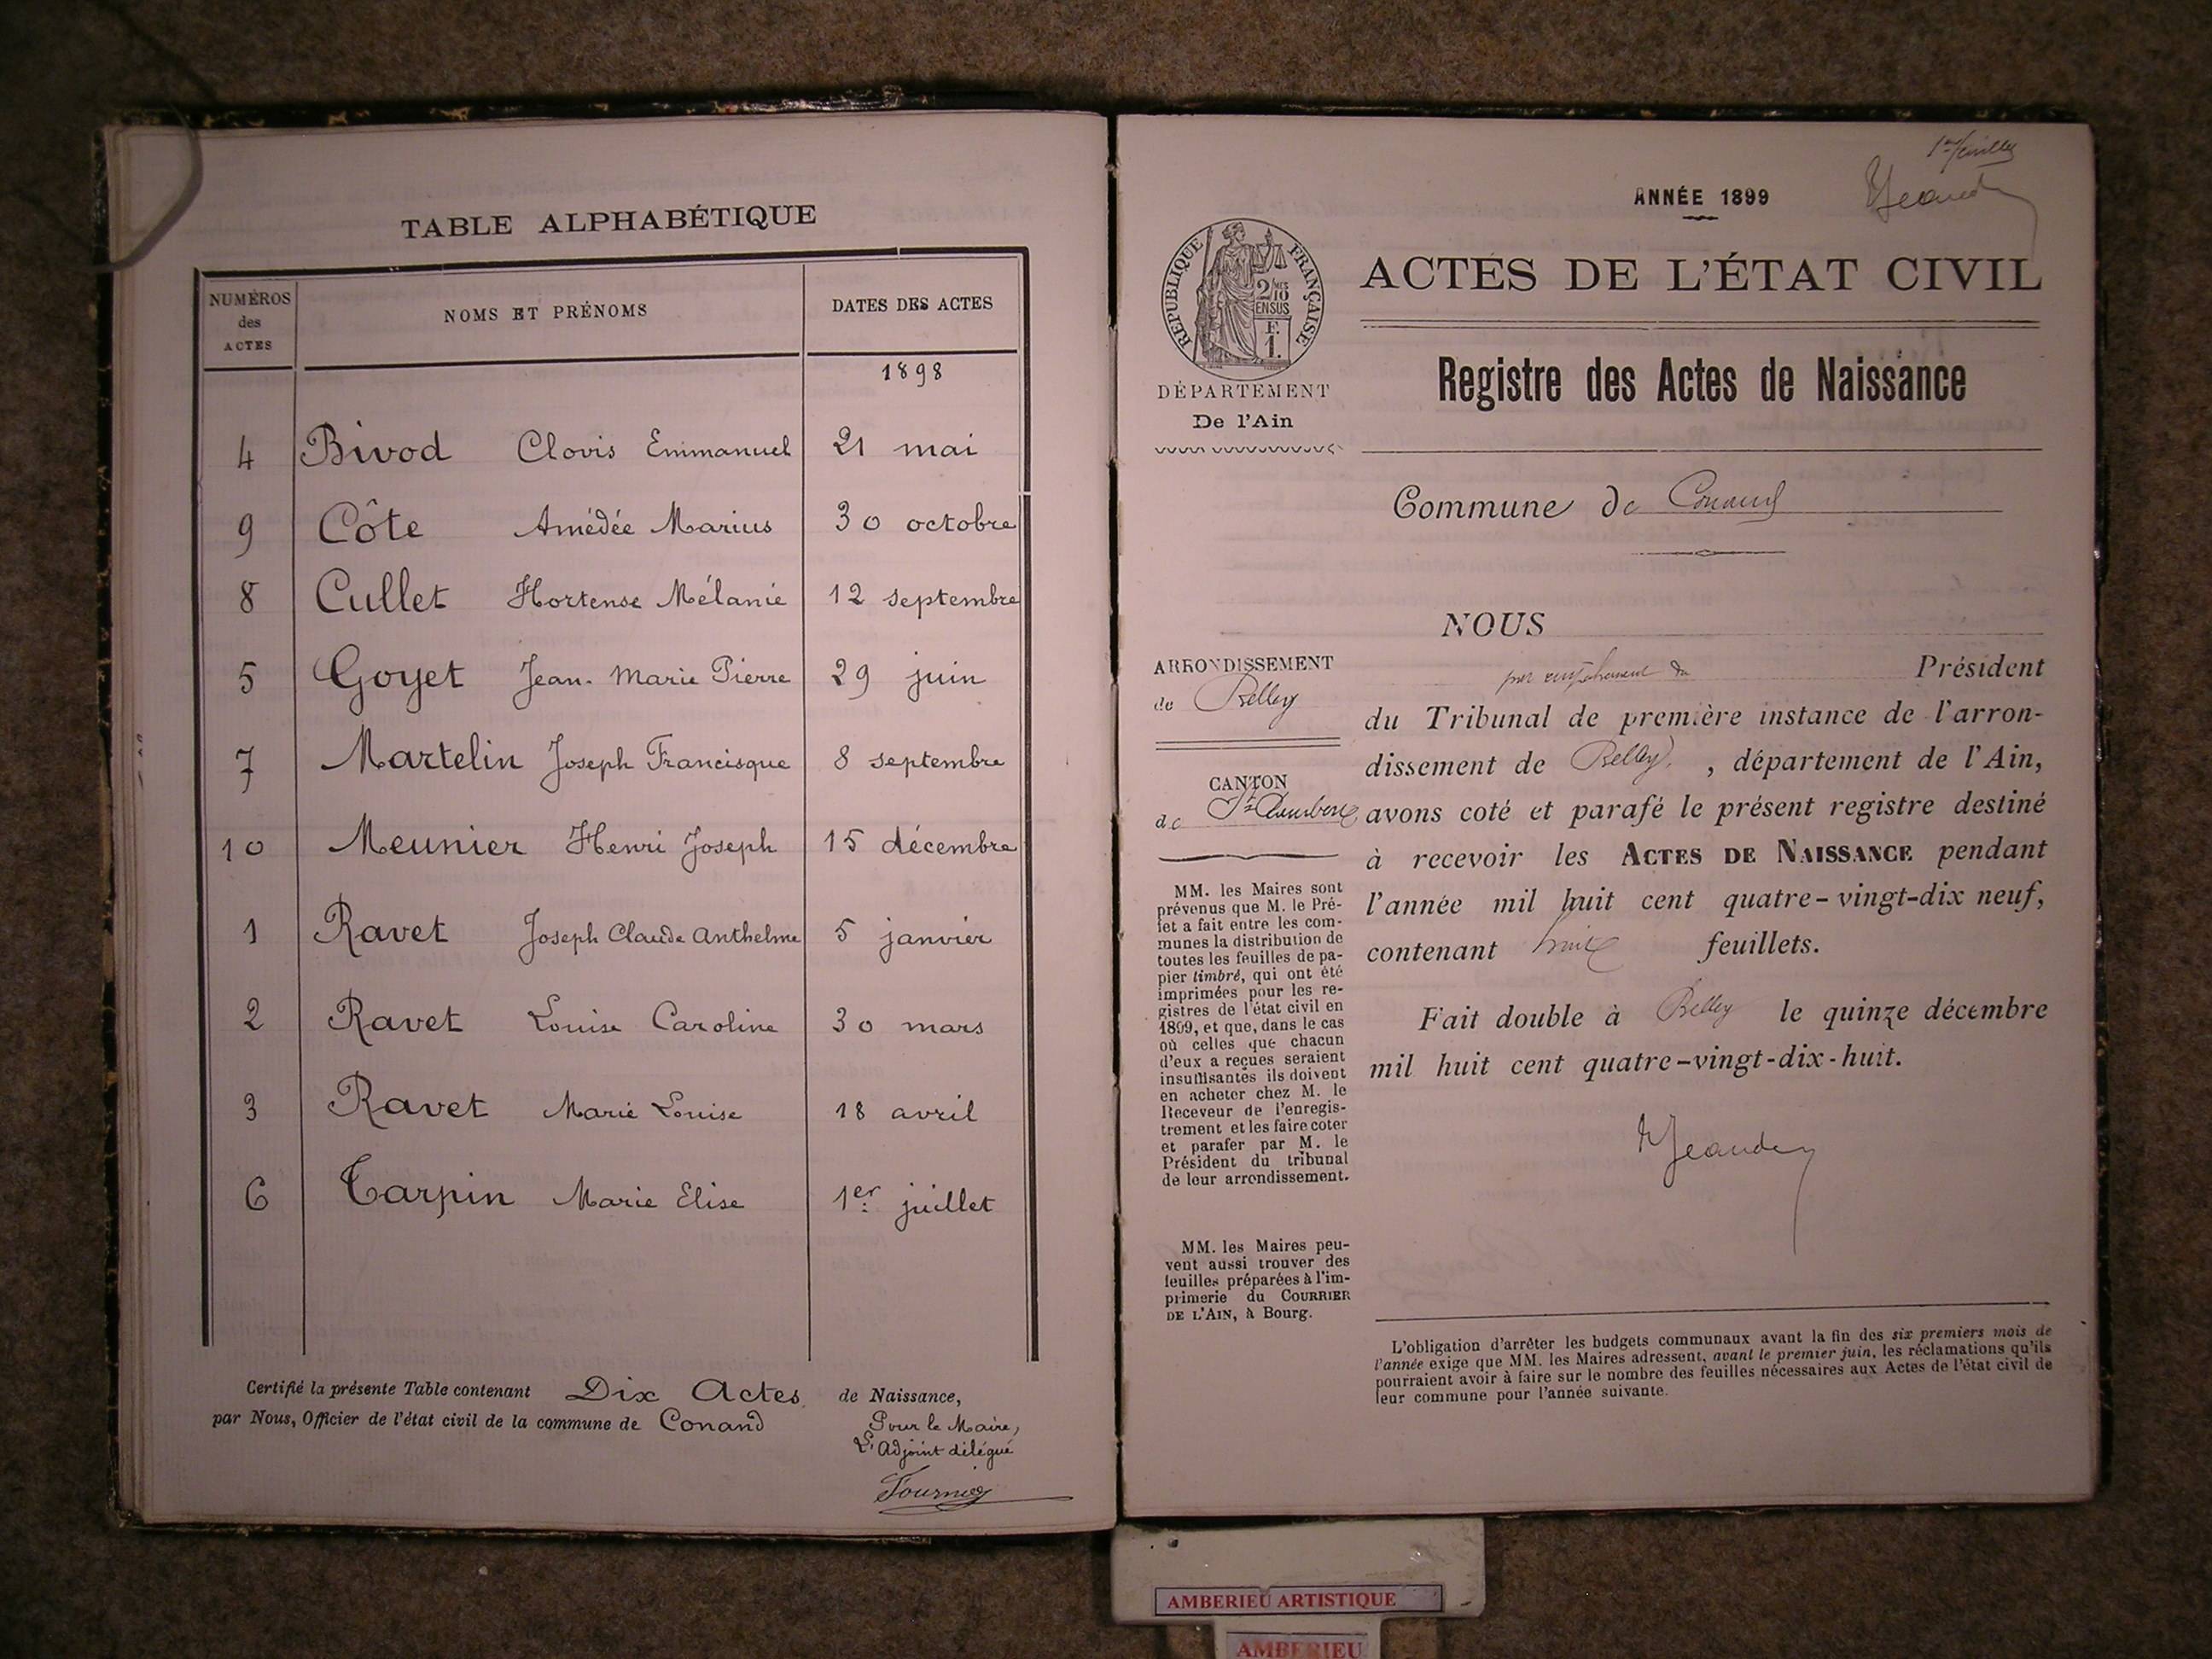 TABLE ALPHABÉTIQUE
NUMÉROS
des
ACTES
NOMS ET PRÉNOMS
DATES DES ACTES
1898
4 Bivod Clovis Emmanuel 21 mai
9 Côte Amédée Marius 30 octobre
8 Cullet Hortense Mélanie 12 septembre
5 Goyet Jean-Marie Pierre 29 juin
7 Martelin Joseph Francisque 8 septembre
10 Meunier Henri Joseph 15 décembre
1 Ravet Joseph Claude Anthelme 5 janvier
2 Ravet Louise Caroline 30 mars
3 Ravet Marie Louise 18 avril
6 Tarpin Marie Elise 1er juillet
Certifié la présente Table contenant Dix Actes de Naissance,
par Nous, Officier de l'état civil de la commune de Conand
Pour le Maire,
L'Adjoint délégué
Fournier
ANNÉE 1899
RÉPUBLIQUE FRANÇAISE
2/10
EN SUS
F.
1.
DÉPARTEMENT
De l'Ain
ACTES DE L'ÉTAT CIVIL
Registre des Actes de Naissance
Commune de Conand
ARRONDISSEMENT
de Belley
CANTON
de St-Rambert
MM. les Maires sont
prévenus que M. le Pré-
fet a fait entre les com-
munes la distribution de
toutes les feuilles de pa-
pier timbré, qui ont été
imprimées pour les re-
gistres de l'état civil en
1899, et que, dans le cas
où celles que chacun
d'eux a reçues seraient
insuffisantes ils doivent
en acheter chez M. le
Receveur de l'enregis-
trement et les faire coter
et parafer par M. le
Président du tribunal
de leur arrondissement.
MM. les Maires peu-
vent aussi trouver des
feuilles préparées à l'im-
primerie du COURRIER
DE L'AIN, à Bourg.
NOUS
par empêchement du Président
du Tribunal de première instance de l'arron-
dissement de Belley, département de l'Ain,
avons coté et parafé le présent registre destiné
à recevoir les ACTES DE NAISSANCE pendant
l'année mil huit cent quatre-vingt-dix neuf,
contenant huit feuillets.
Fait double à Belley le quinze décembre
mil huit cent quatre-vingt-dix-huit.
L'obligation d'arrêter les budgets communaux avant la fin des six premiers mois de
l'année exige que MM. les Maires adressent, avant le premier juin, les réclamations qu'ils
pourraient avoir à faire sur le nombre des feuilles nécessaires aux Actes de l'état civil de
leur commune pour l'année suivante.
AMBERIEU ARTISTIQUE
AMBERIEU